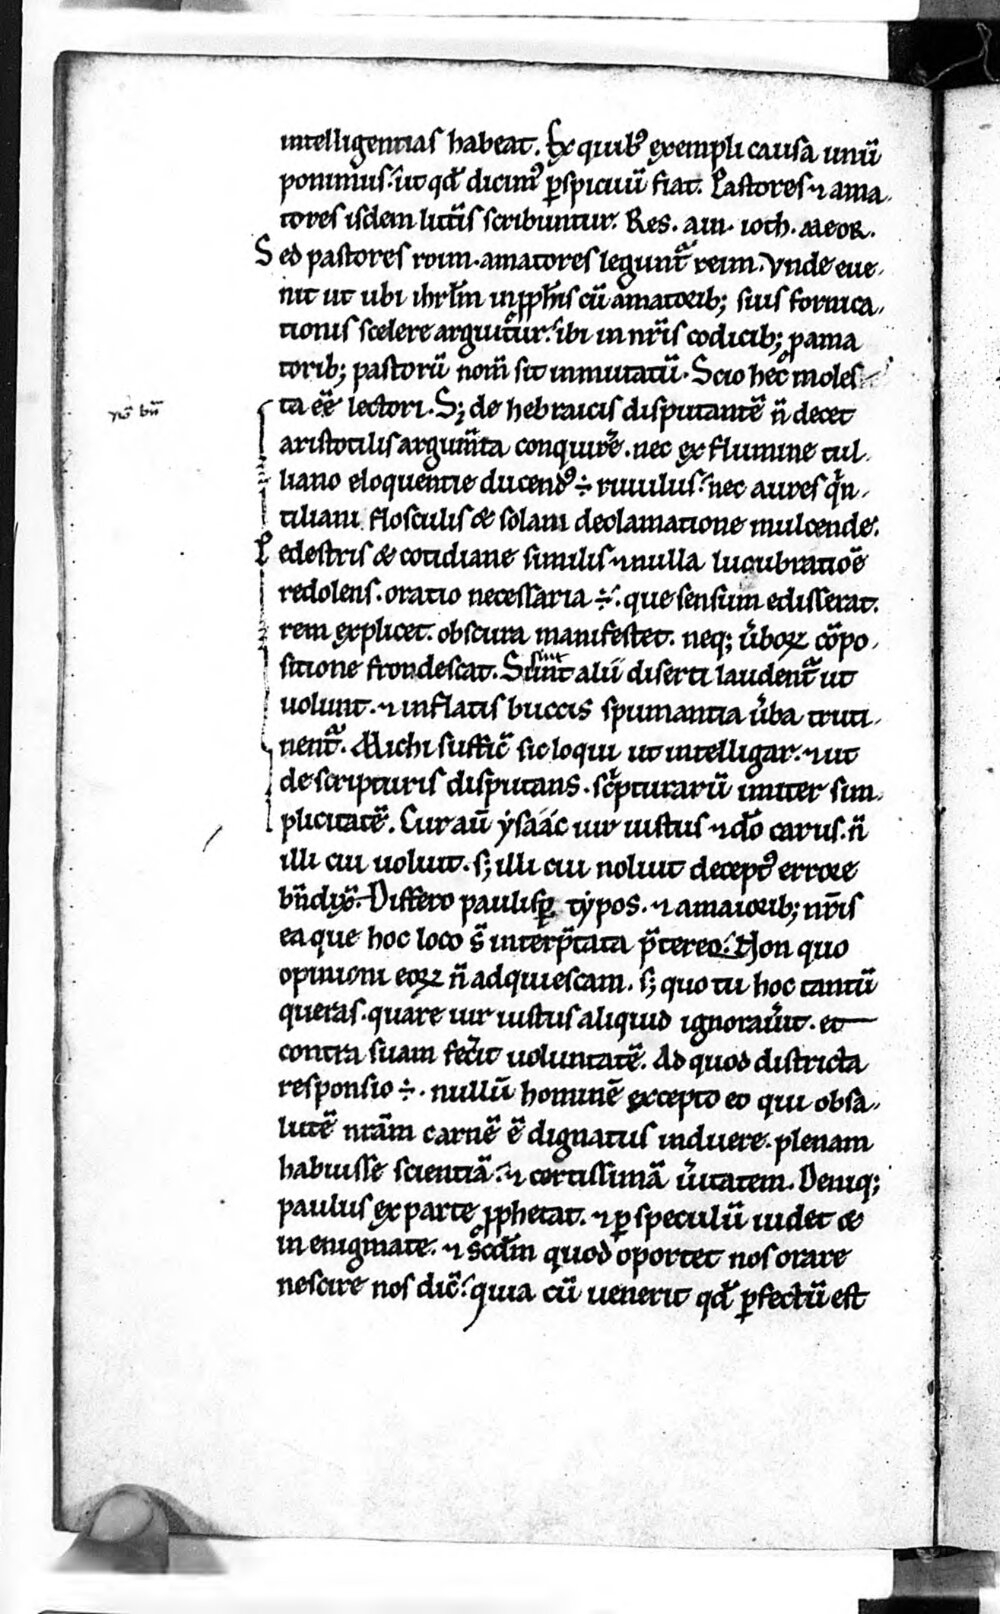 intelligentias habeat. Ex quibꝰ exempli causa unū
ponim̄us. ut qd̄ dicimꝰ ꝑspicuū fiat. Pastores ⁊ ama
tores isdem litt̄is scribuntur. Res. ain. ioth. meor.
Sed pastores roim. amatores legunt᷑ reim. Vnde eue
nit ut ubi ihrl̄m in ꝓph̄is cū amatorib; suis fornica
tionis scelere arguitur. ibi in nr̄is codicib; ꝓ ama
torib; pastorū nom̄ sit inmutatū. Scio hec moles
nō bn̄
ta eē lectori. S; de hebraicis disputantē n̄ decet
aristotilis argum̄ta conquirē. nec ex flumine tul
liano eloquentie ducendꝰ ÷ riuulus. nec aures qn̄
tiliani flosculis & scolam declamatione mulcende.
Pedestris & cotidiane similis ⁊ nulla lucubratiōe
redolens. oratio necessaria ÷. que sensum edisserat.
rem explicet. obscura manifestet. neq; ūboꝝ cōpo
sitione frondescat. Sint alii diserti laudent᷑ ut
uolunt. ⁊ inflatis buccis spumantia ūba truti
nent᷑. Michi suffic̄ sic loqui ut intelligar. ⁊ ut
de scripturis disputans. sc̄pturarū imiter sim
plicitatē. Cur aū ysaac uir iustus ⁊ do̅ carus. n̄
illi cui uoluit. s; illi cui noluit deceptꝰ errore
bn̄dix̄. Differo paulisꝑ typos. ⁊ a maiorib; nr̄is
ea que hoc loco s̄ interp̄tata p̄tereo. Non quo
opinioni eoꝝ n̄ adquiescam. s; quo tu hoc tantū
queras. quare uir iustus aliquid ignorau̅it. et
contra suam fec̄it uoluntatē. Ad quod districta
responsio ÷. nullū hominē excepto eo qui ob sa
lutē nr̄am carnē ē dignatus induere. plenam
habuisse scientiā. ⁊ certissimā ūitatem. Deniq;
paulus ex parte ꝓphetat. ⁊ ꝑ speculū uidet &
in enigmate. ⁊ sc̄dm quod oportet nos orare
nescire nos dic̄. quia cū uenerit qd̄ ꝑfectū est